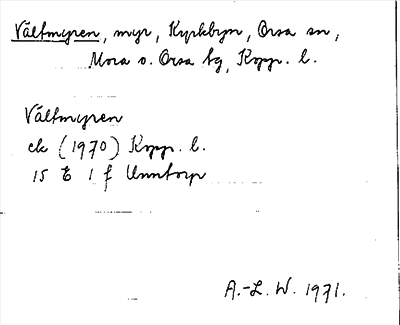 Vältmyren, myr, Kyrkbyn, Orsa sn,
Mora o. Orsa tg, Kopp. l.
Vältmyren
ek (1970) Kopp. l.
15 E 1 f Unntorp
A.-L. W. 1971.